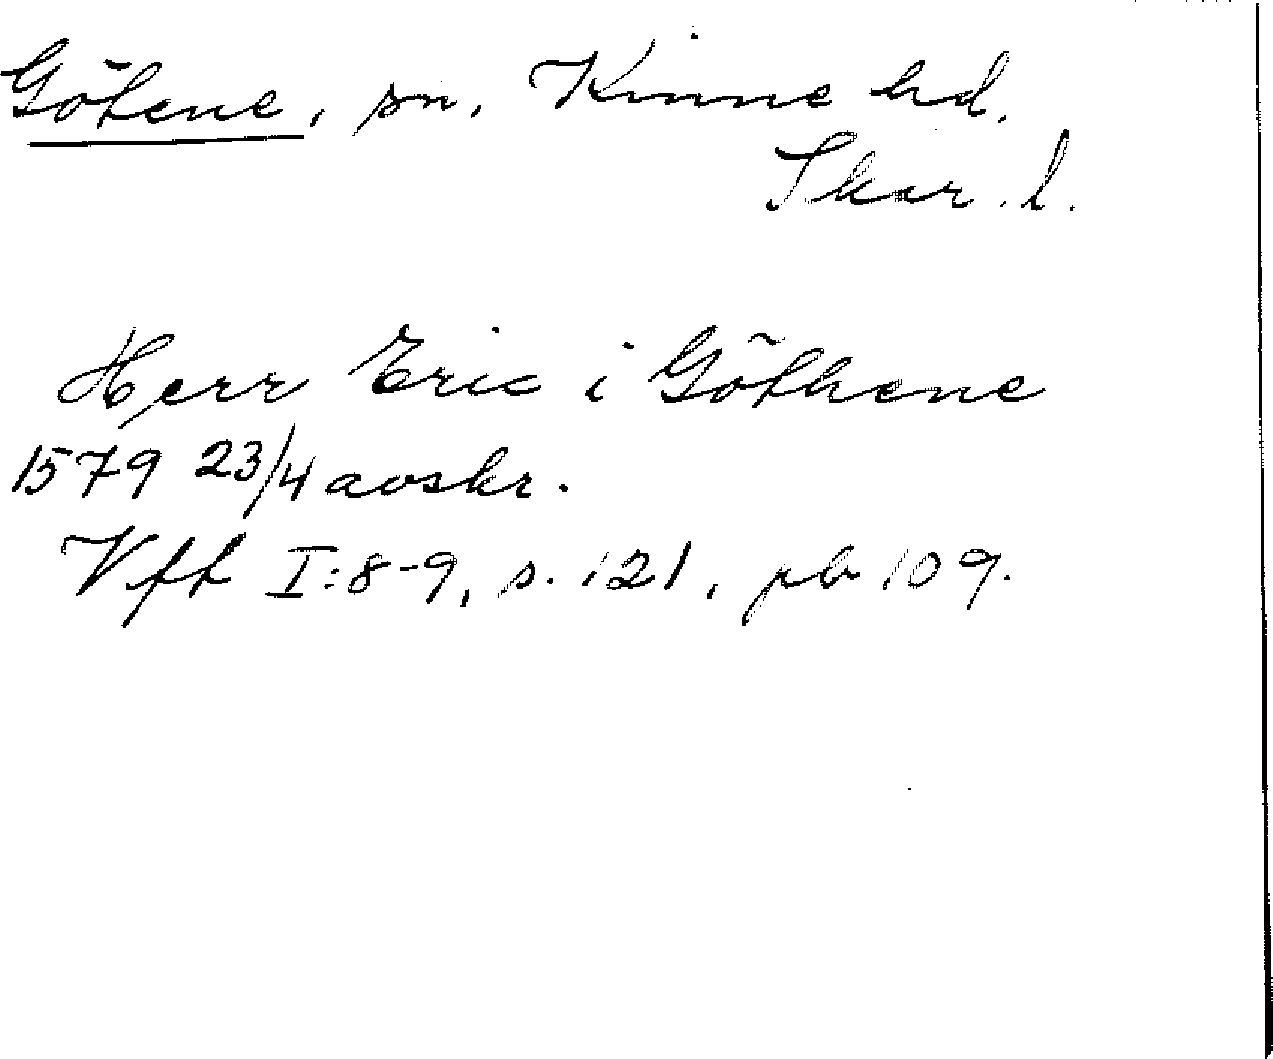 Götene, sn, Kinne hd.
Skar. l.
Herr Eric i Göthene
1579 23/4 avskr.
Vfft I:8-9, s. 121, pb 109.